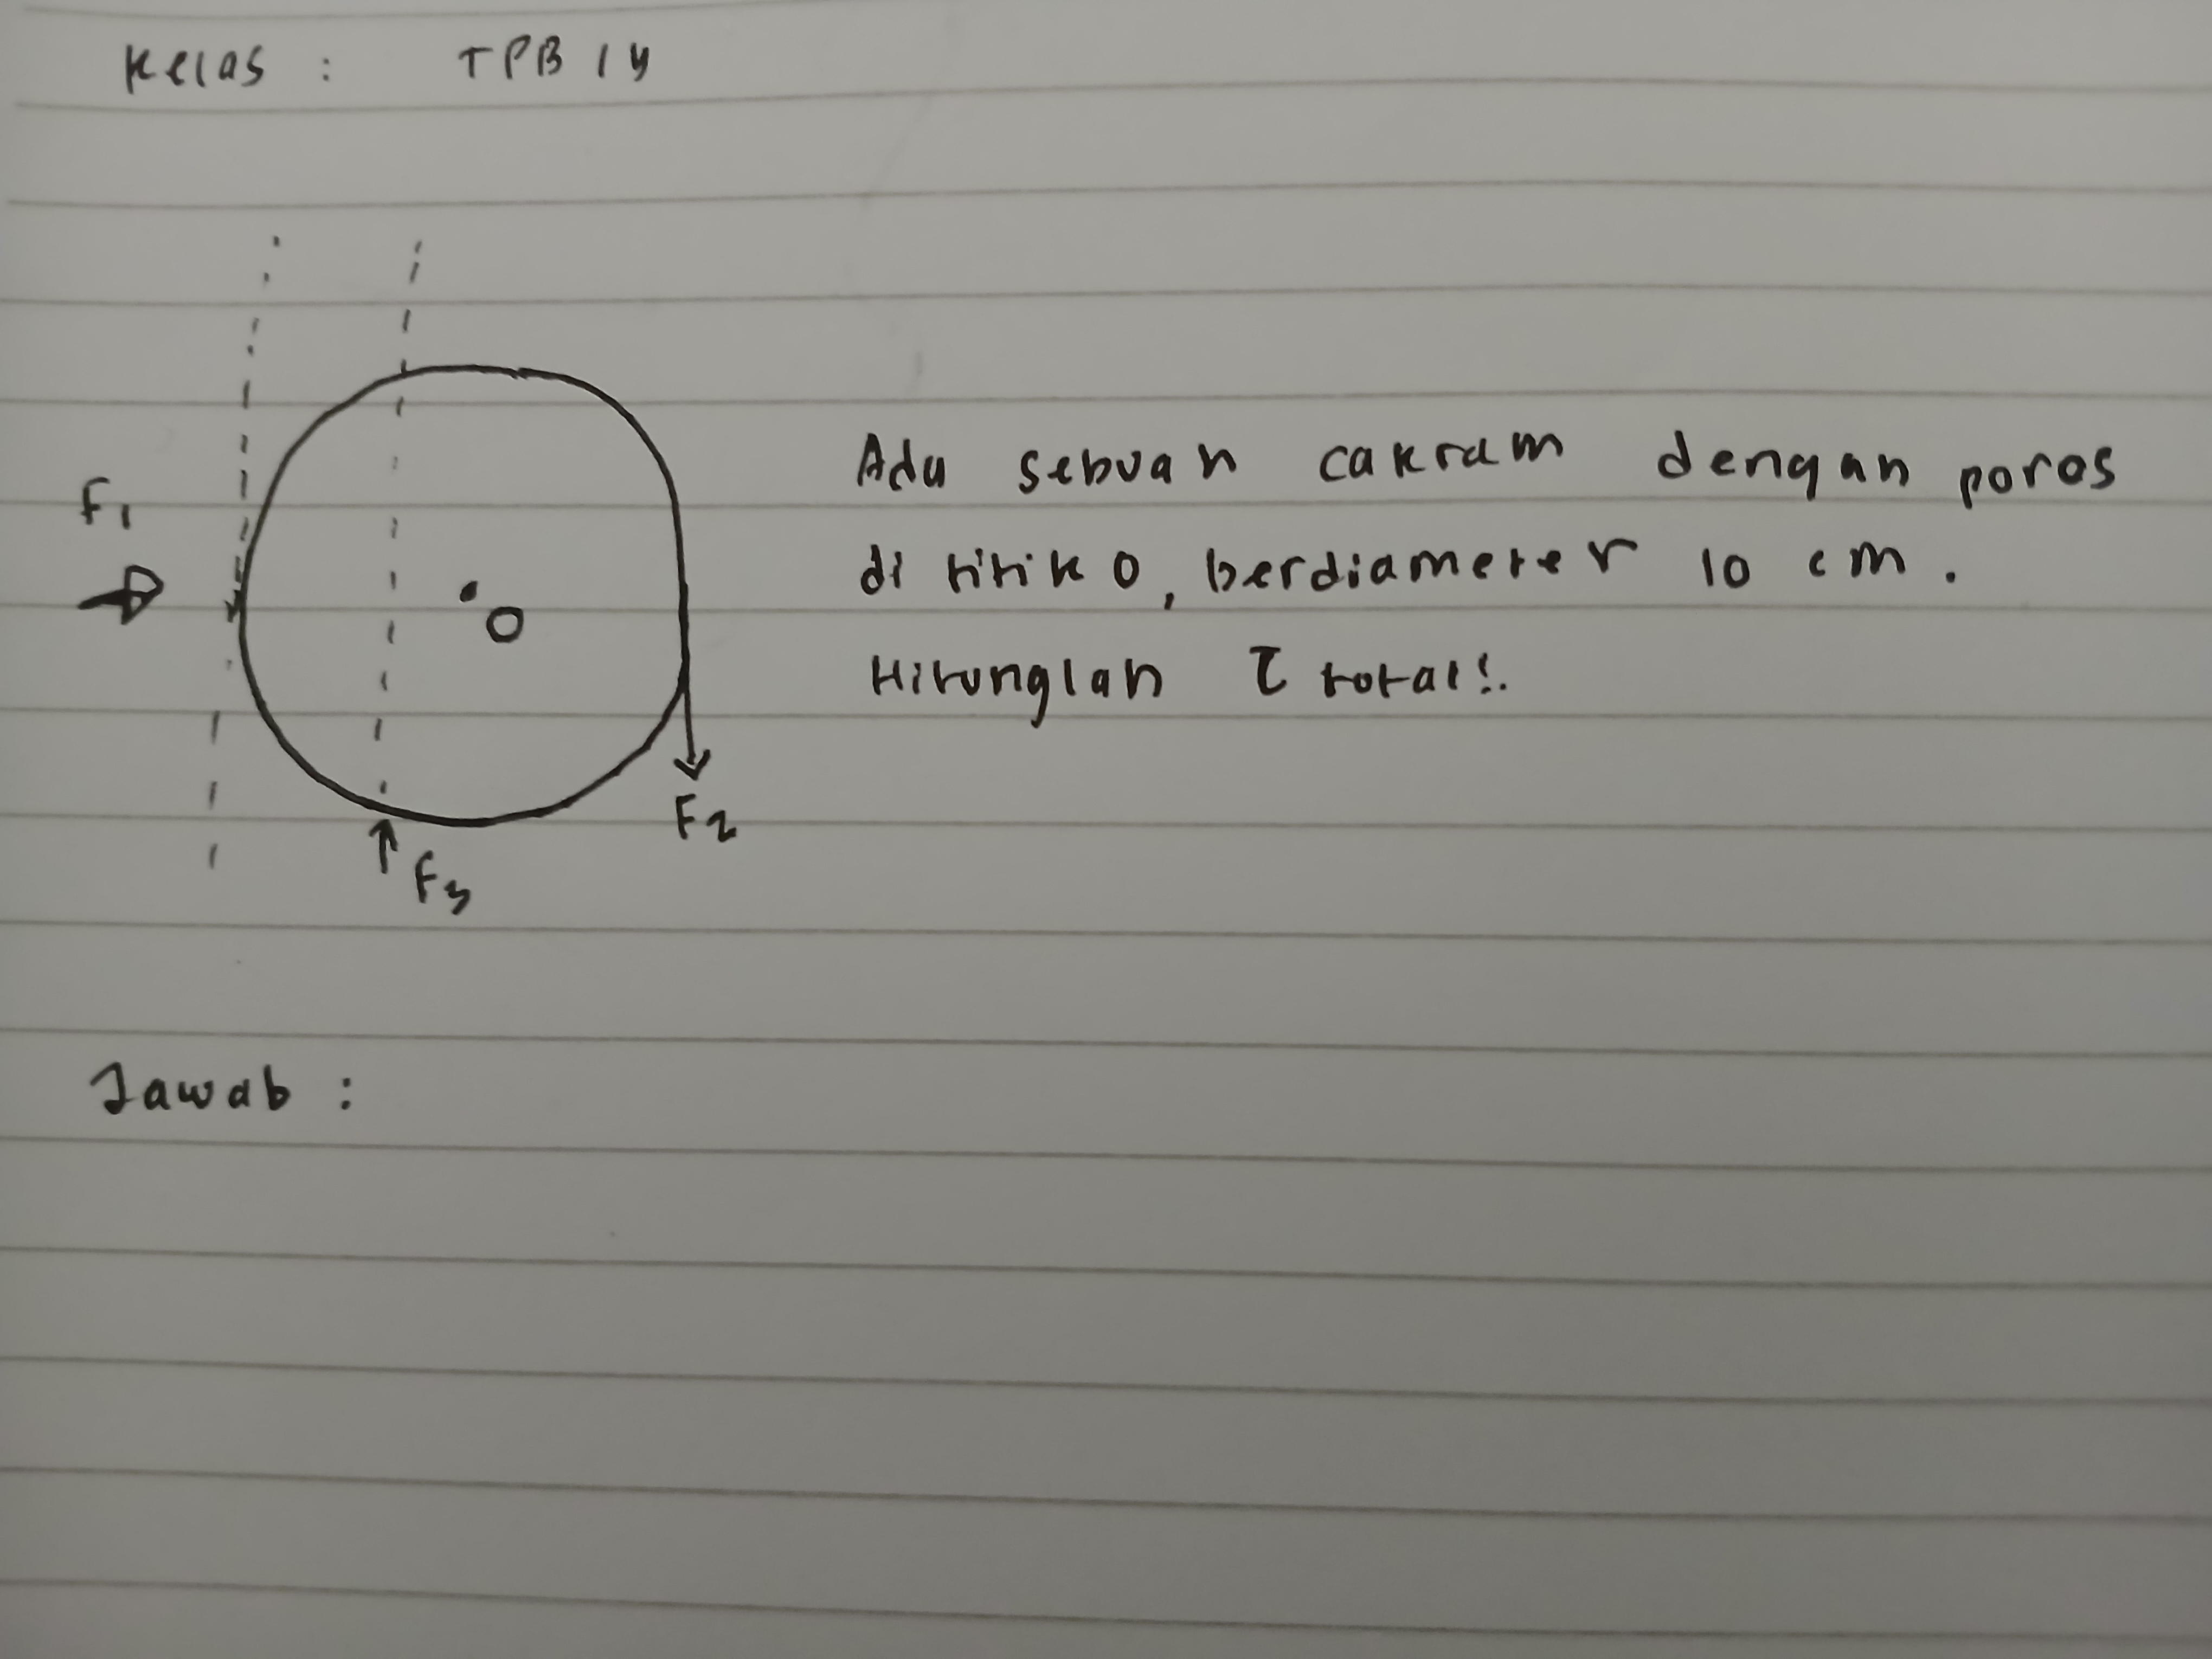 Kelas : TPB 14
F1
O
F3
F2
Ada sebuah cakram dengan poros
di titik O, berdiameter 10 cm.
Hitunglah τ total!.
Jawab :